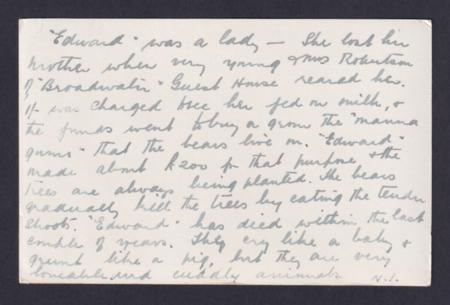 "Edward" was a lady — She lost her
mother when very young & Mrs Robertson
of "Broadwater" Guest House reared her.
It was charged to see her fed on milk, &
the funds went to buy & grow the "manna
gums" that the bears live on. "Edward"
made about £200 for that purpose & the
trees are always being planted. The bears
gradually kill the trees by eating the tender
shoots. "Edward" has died within the last
couple of years. They cry like a baby &
grunt like a pig, but they are very
loveable and cuddly animals